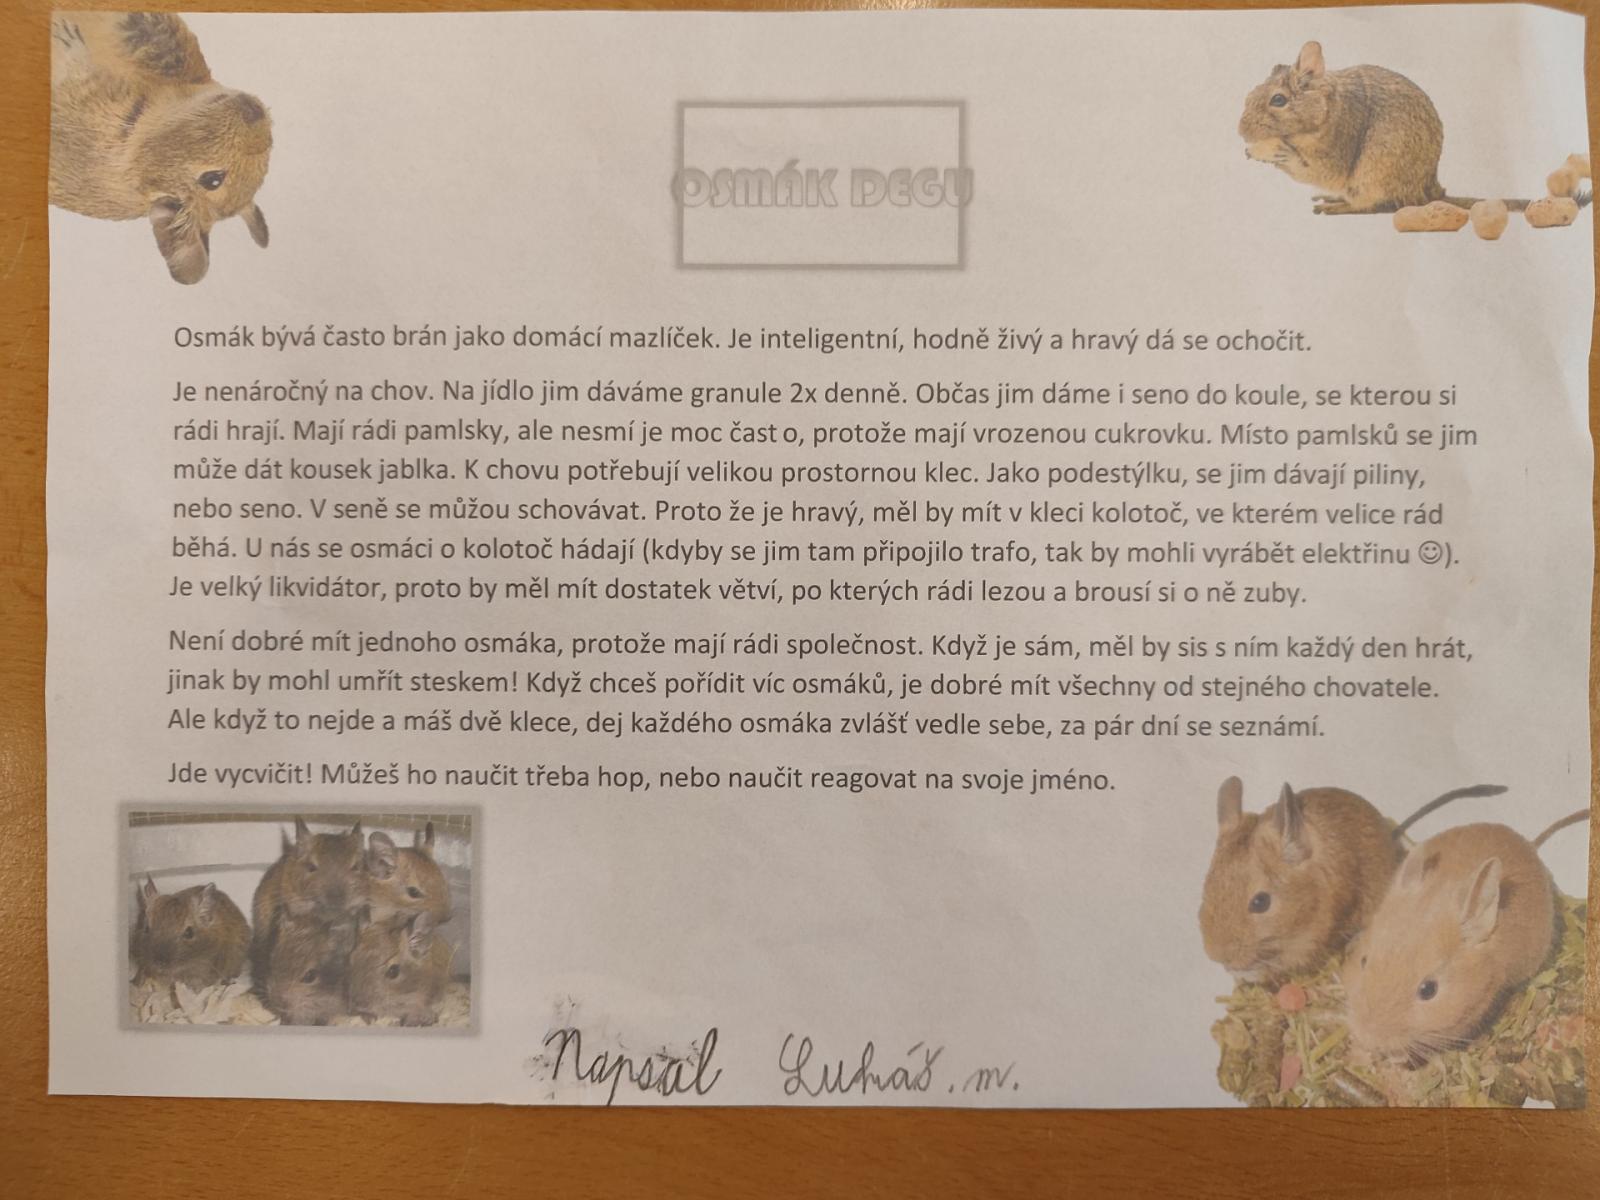 OSMÁK DEGU
Osmák bývá často brán jako domácí mazlíček. Je inteligentní, hodně živý a hravý dá se ochočit.
Je nenáročný na chov. Na jídlo jim dáváme granule 2x denně. Občas jim dáme i seno do koule, se kterou si
rádi hrají. Mají rádi pamlsky, ale nesmí je moc čast o, protože mají vrozenou cukrovku. Místo pamlsků se jim
může dát kousek jablka. K chovu potřebují velikou prostornou klec. Jako podestýlku, se jim dávají piliny,
nebo seno. V seně se můžou schovávat. Proto že je hravý, měl by mít v kleci kolotoč, ve kterém velice rád
běhá. U nás se osmáci o kolotoč hádají (kdyby se jim tam připojilo trafo, tak by mohli vyrábět elektřinu ☺).
Je velký likvidátor, proto by měl mít dostatek větví, po kterých rádi lezou a brousí si o ně zuby.
Není dobré mít jednoho osmáka, protože mají rádi společnost. Když je sám, měl by sis s ním každý den hrát,
jinak by mohl umřít steskem! Když chceš pořídit víc osmáků, je dobré mít všechny od stejného chovatele.
Ale když to nejde a máš dvě klece, dej každého osmáka zvlášť vedle sebe, za pár dní se seznámí.
Jde vycvičit! Můžeš ho naučit třeba hop, nebo naučit reagovat na svoje jméno.
Napsal Lukáš. m.